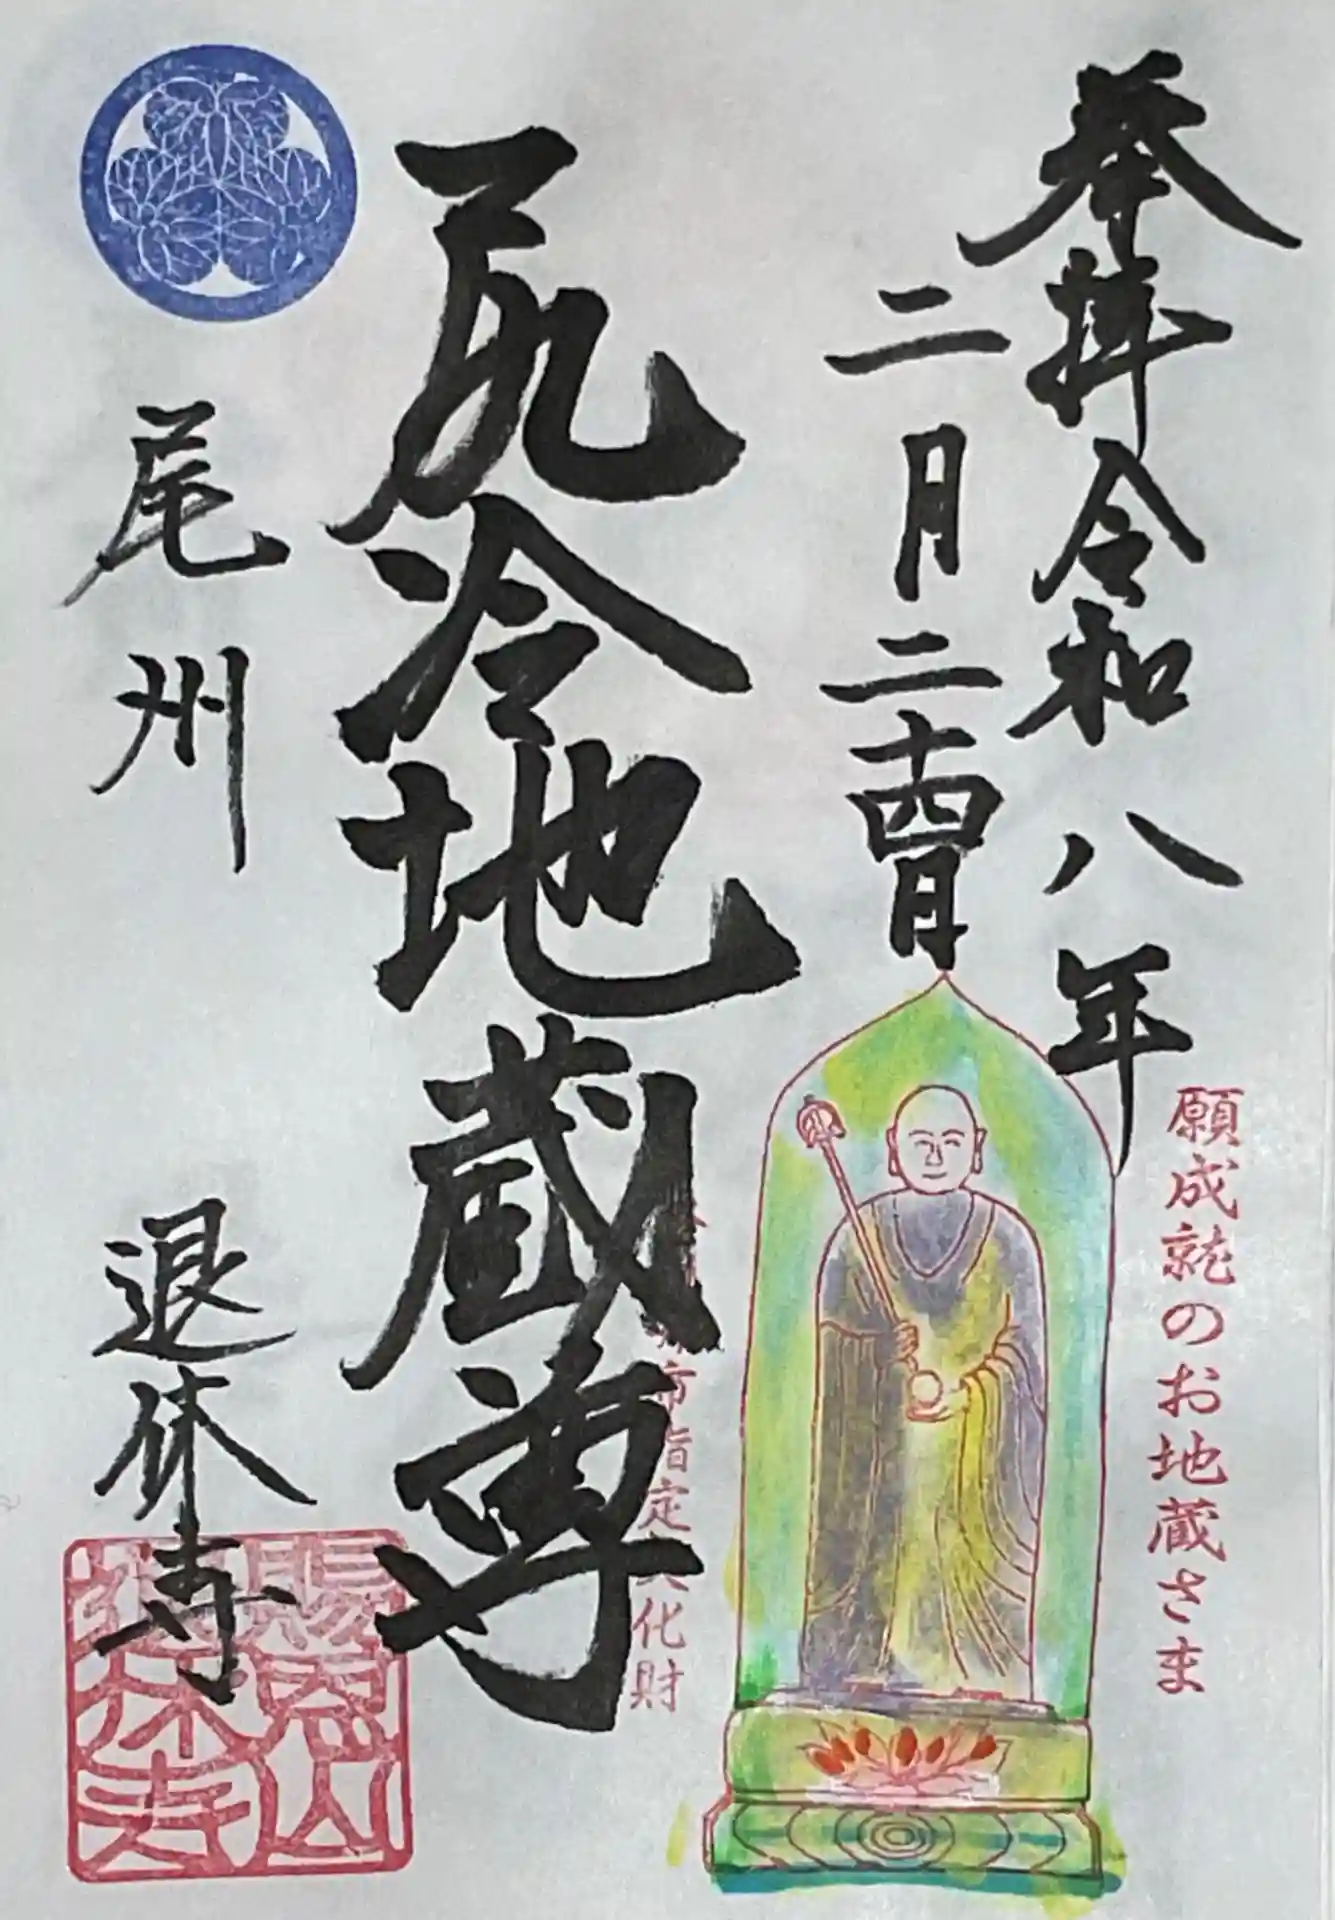 奉拝 令和八年
二月二十四日
願成就のお地蔵さま
尻冷地蔵尊
市指定文化財
尾州 退休寺
賜恩山
退休寺